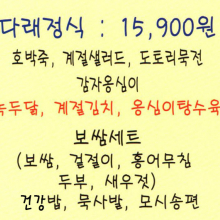 다래정식 : 15,900원
호박죽, 계절샐러드, 도토리묵전
감자옹심이
녹두닭, 계절김치, 옹심이탕수육
보쌈세트
(보쌈, 겉절이, 홍어무침
두부, 새우젓)
건강밥, 묵사발, 모시송편